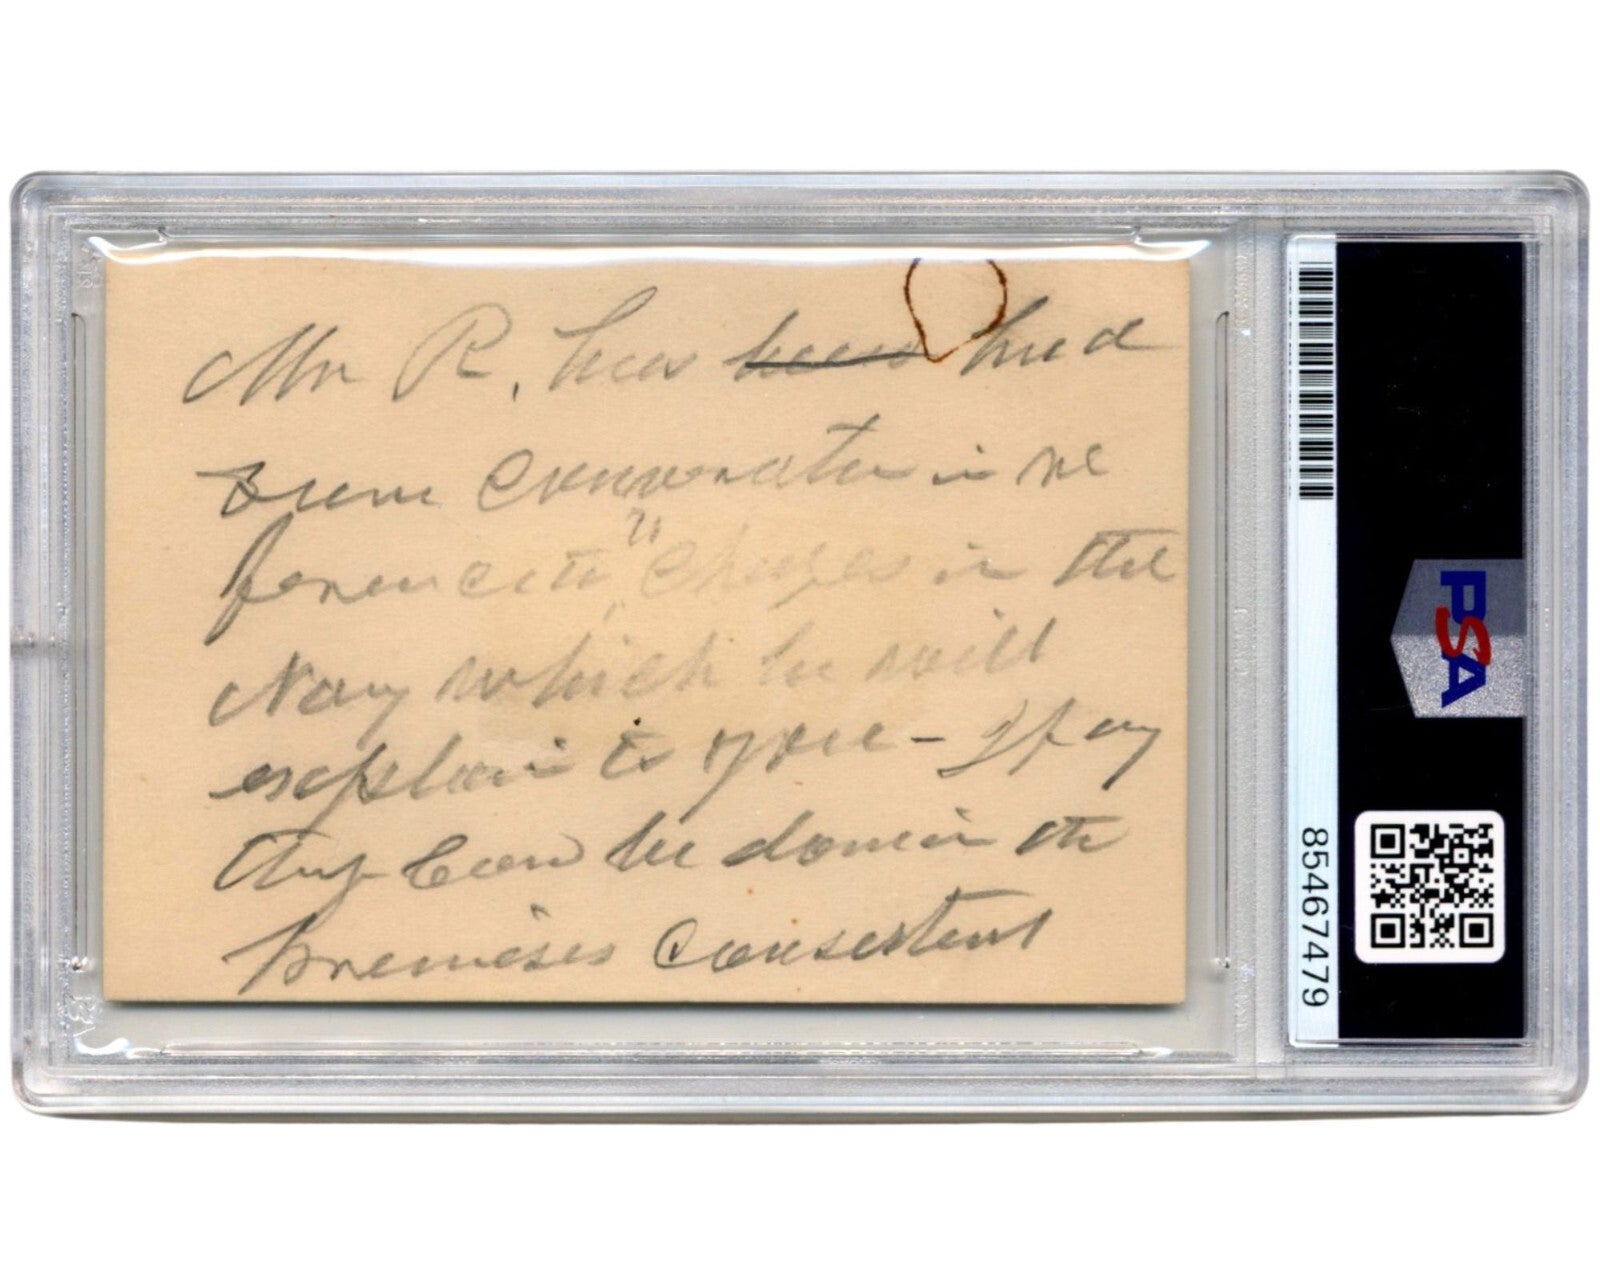 Mr R. has been had
some conversation in re
ference to "changes in the
Navy which he will
explain to you – If any
thing can be done in the
premises consistent
PSA
85467479